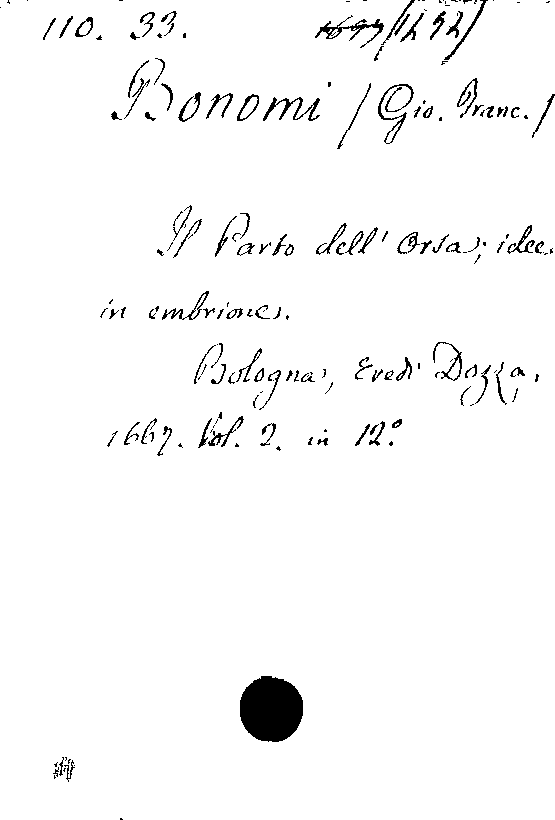 110. 33. 1693 /1252/
Bonomi /Gio. Franc./
Il Parto dell' Orsa; idee
in embrione.
Bologna, Eredi Dozza,
1667. Vol. 2. in 12.º